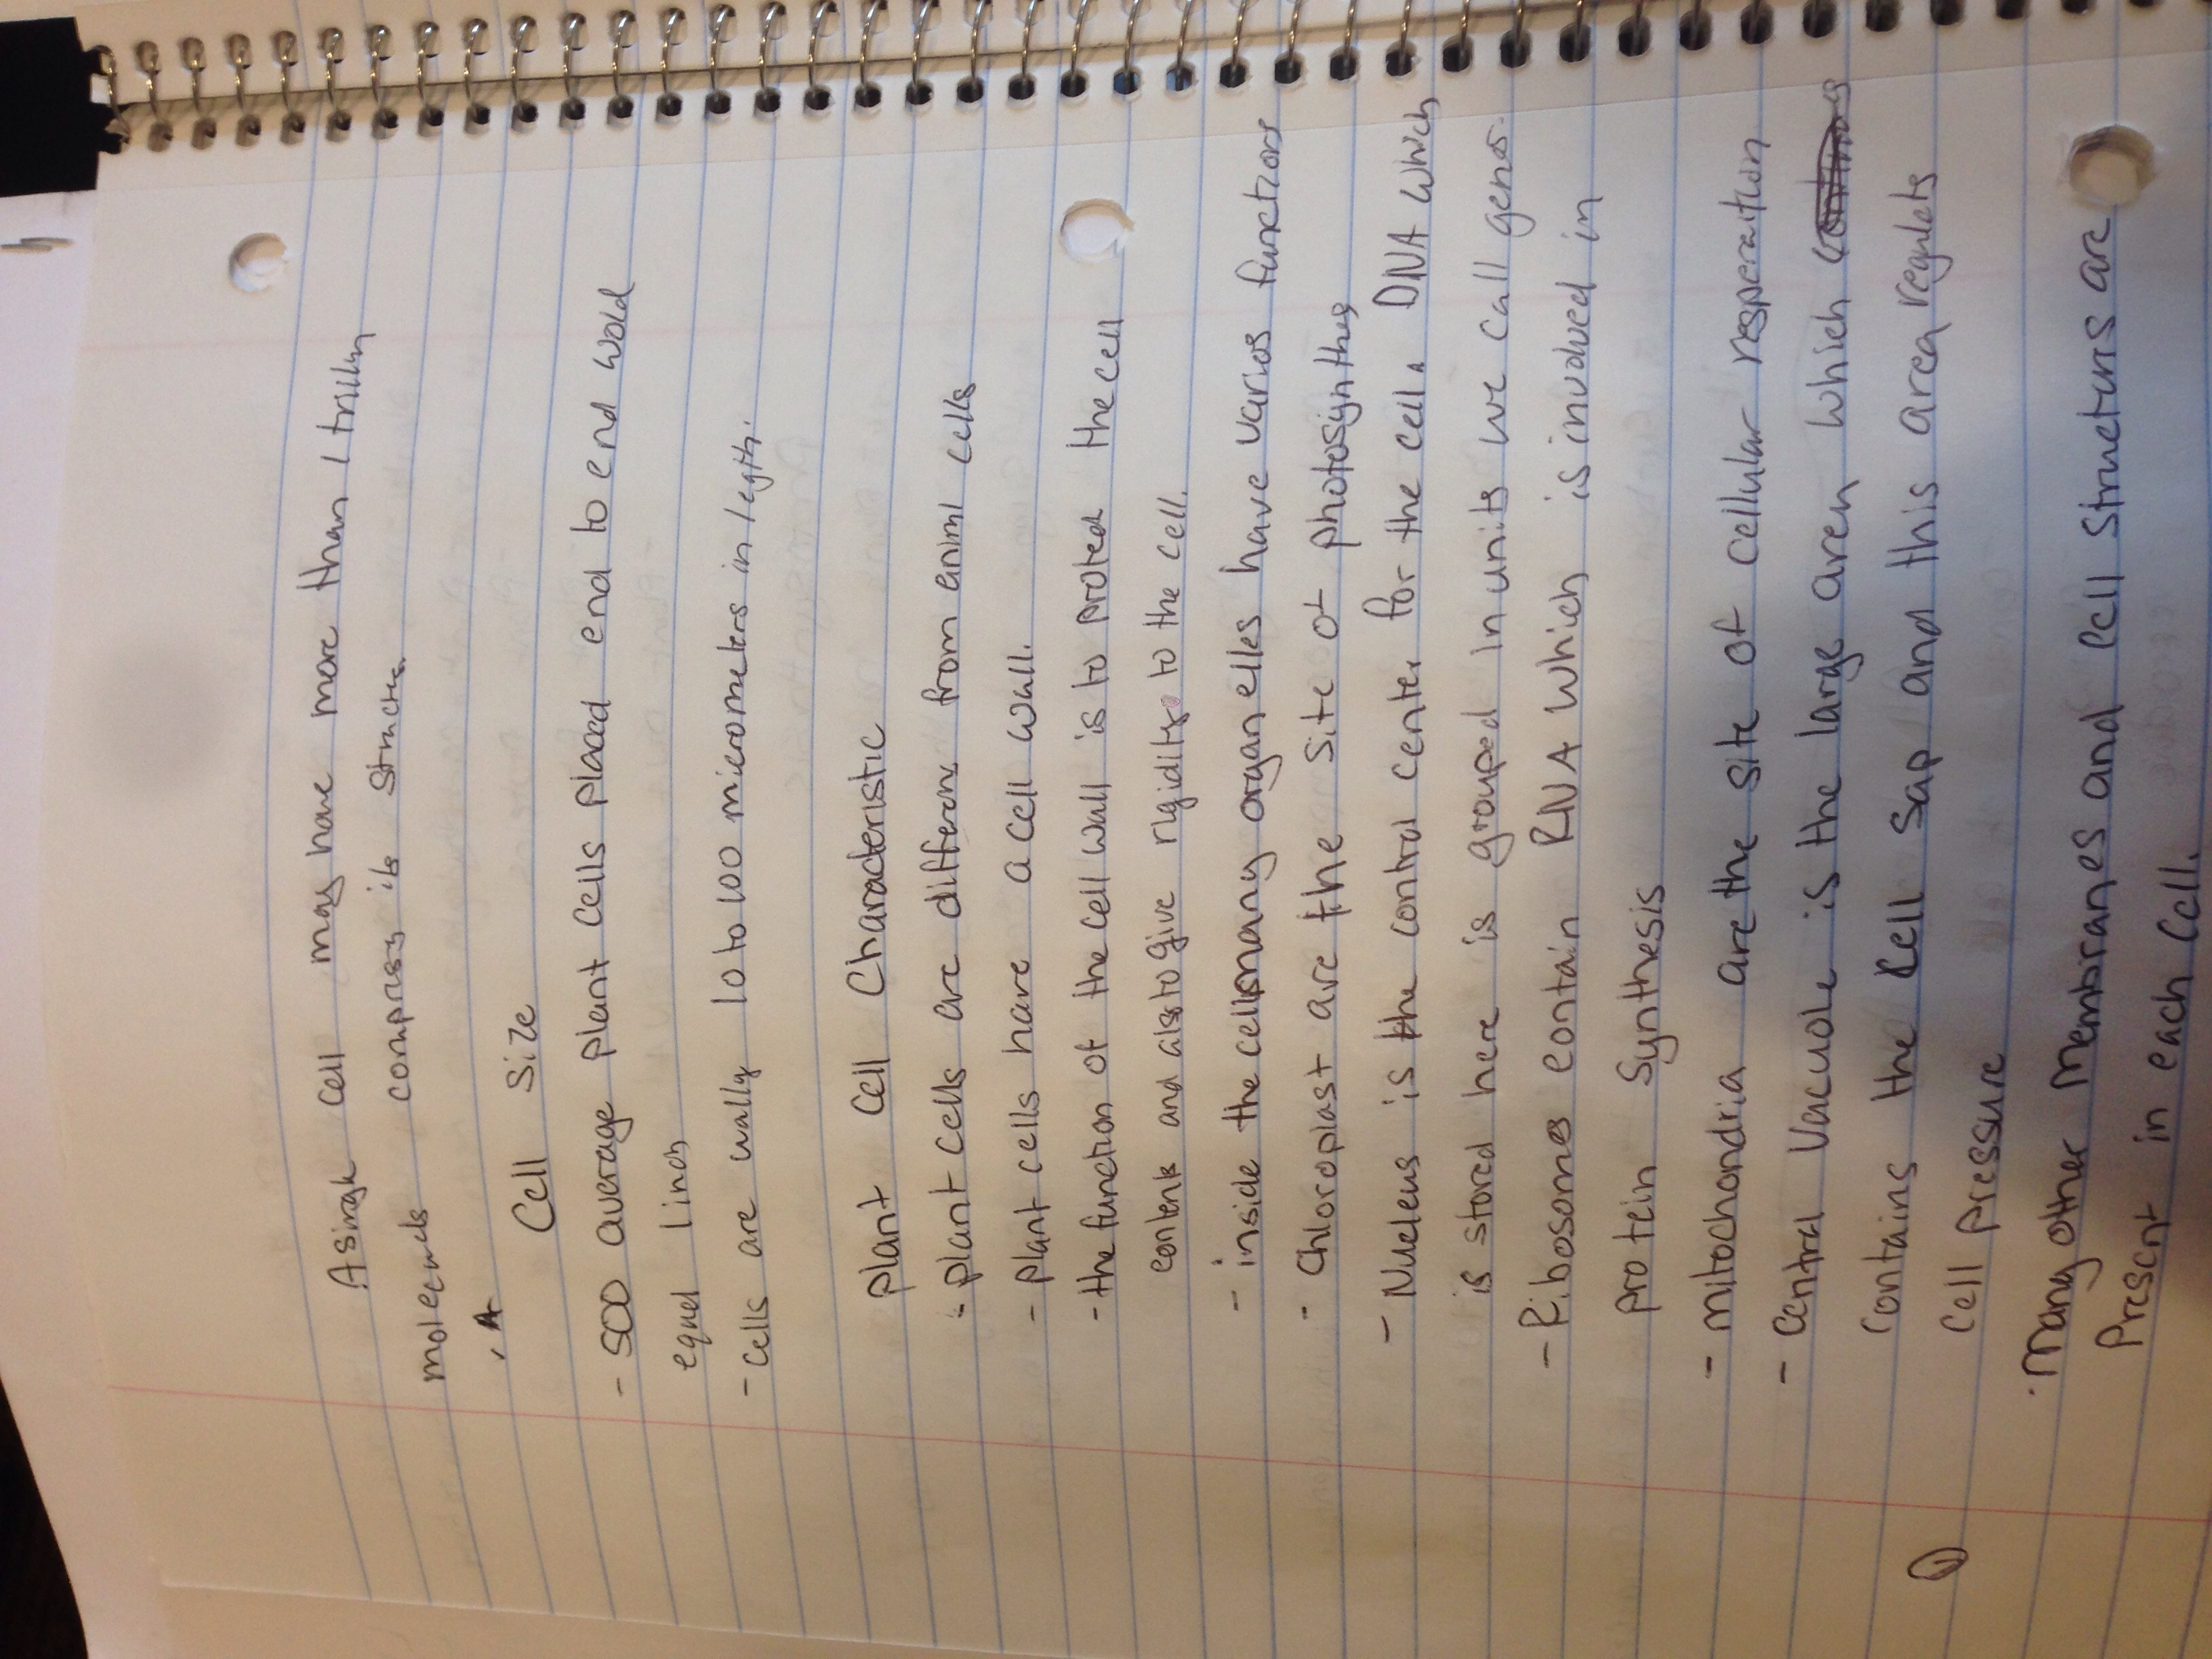 A single cell may have more than 1 trillion
molecules compress its structre.
, A
Cell Size
- 500 average plant cells placed end to end wold
equel 1 inch
- cells are wally 10 to 100 micrometers in legth.
plant Cell Characteristic
- plant cells are different from animl cells
- plant cells have a cell wall.
- the function of the cell wall is to proted the cell
contents and also to give rigidity to the cell.
- inside the cell many organelles have varios functions
- Chloroplast are the site of photosignthes
- Nucleus is the control center for the cell. DNA which
is stored here is grouped in units we call genes.
- Ribosomes contain RNA which is involved in
protein Synthesis
- mitochondria are the site of cellular resperaition
- Central Vacuole is the large area which
contains the Cell Sap and this area regulets
Cell pressure
1
. Many other Membranes and Cell Structurs are
Present in each Cell.